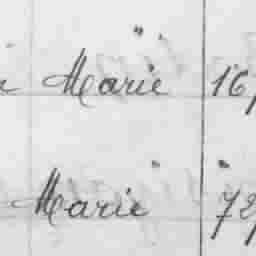 Marie 16
Marie 72